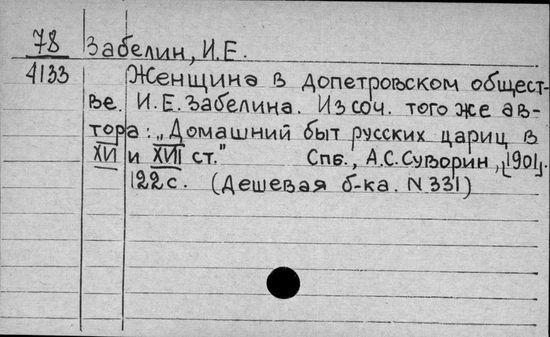 78 Забелин, И.Е.
4133 Женщина в допетровском общест-
ве. И.Е. Забелина. Из соч. того же ав-
тора: „Домашний быт русских цариц в
XVI и XVII ст." Спб., А.С. Суворин, [1901].
122 с. (Дешевая б-ка. N 331)